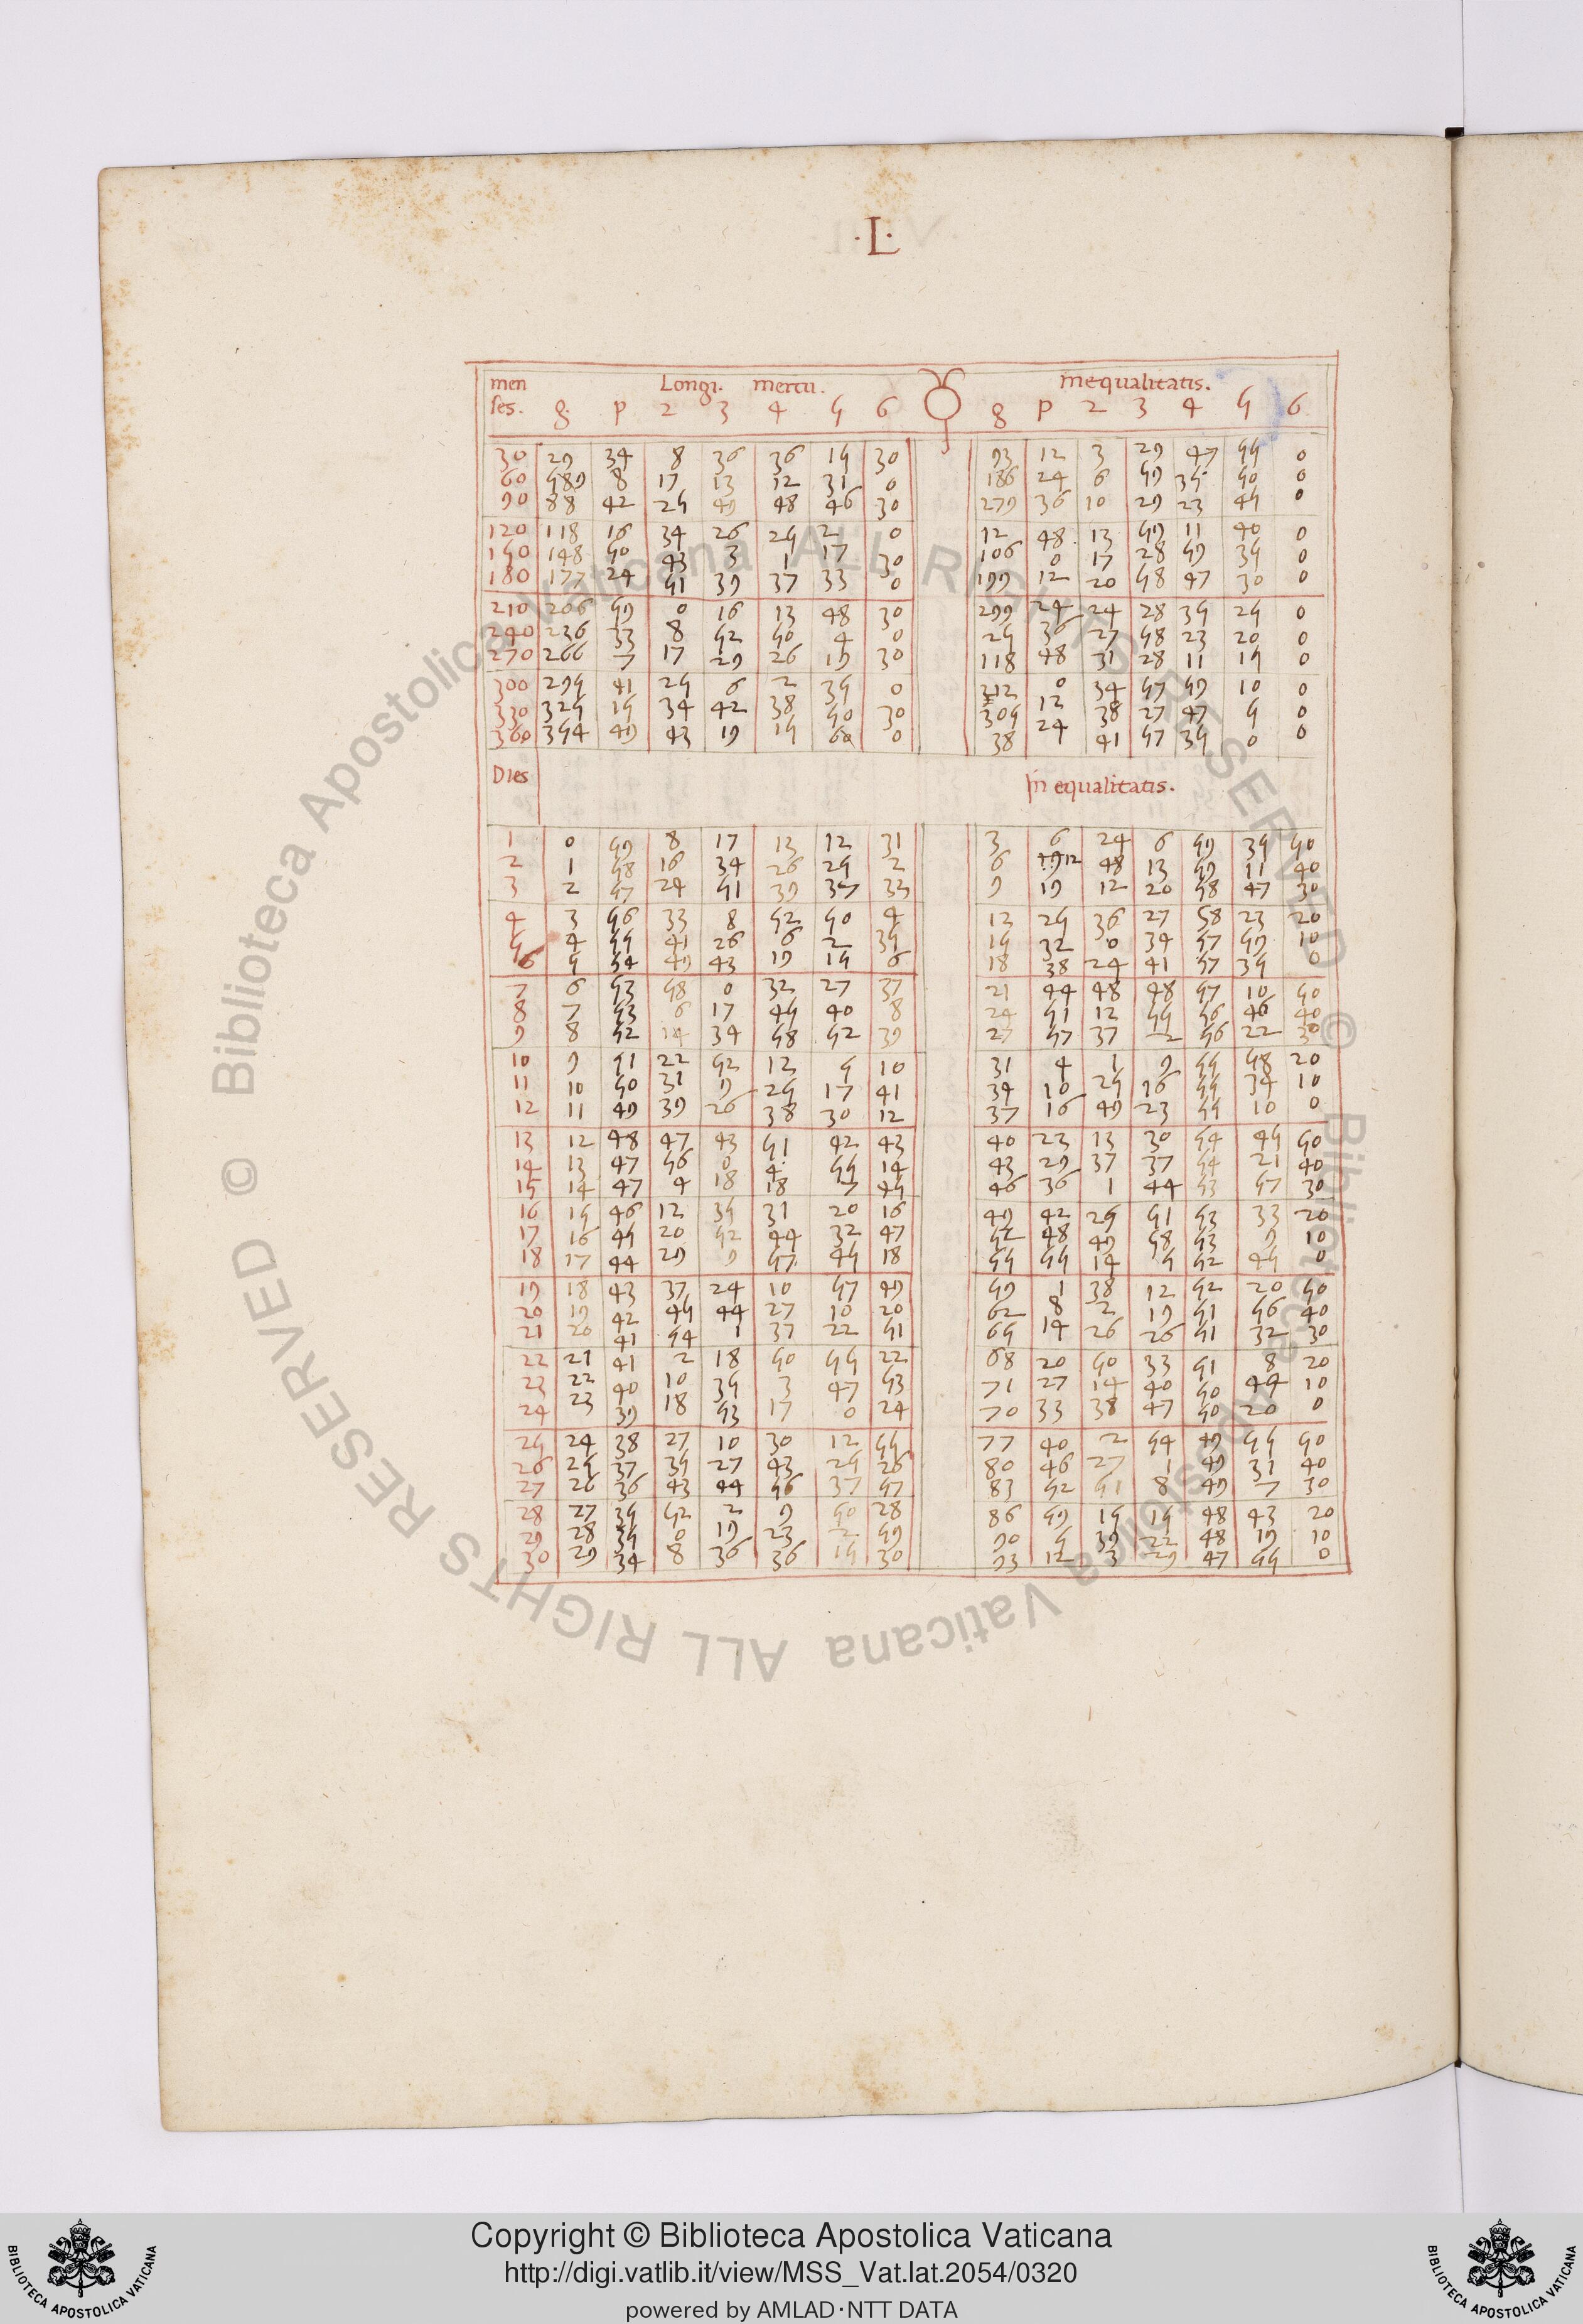 ·L·
men Longi. mercu. inequalitatis.
ses. g. p 2 3 4 5 6 g p 2 3 4 5 6
30 29 34 8 36 36 15 30 93 12 3 29 47 55 0
60 589 8 17 13 12 31 0 186 24 6 59 35 50 0
90 88 42 25 49 48 46 30 279 36 10 29 23 45 0
120 118 16 34 26 25 2 0 12 48 13 59 11 40 0
150 148 50 43 3 1 17 30 106 0 17 28 59 35 0
180 177 24 51 39 37 33 0 199 12 20 58 47 30 0
210 206 59 0 16 13 48 30 299 24 24 28 35 25 0
240 236 33 8 52 50 4 0 25 36 27 58 23 20 0
270 266 7 17 29 26 19 30 118 48 31 28 11 15 0
300 295 41 25 6 2 35 0 212 0 34 57 59 10 0
330 325 15 34 42 38 50 30 305 12 38 27 47 5 0
360 354 49 43 19 15 60 0 38 24 41 57 35 0 0
Dies In equalitatis.
1 0 59 8 17 13 12 31 3 6 24 6 59 35 50
2 1 58 16 34 26 25 2 6 12 48 13 59 11 40
3 2 57 24 51 39 37 33 9 19 12 20 58 47 30
4 3 56 33 8 52 50 4 12 25 36 27 58 23 20
5 4 55 41 26 6 2 35 15 32 0 34 57 59 10
6 5 54 49 43 19 15 6 18 38 24 41 57 35 0
7 6 53 58 0 32 27 37 21 44 48 48 57 10 50
8 7 53 6 17 45 40 8 24 51 12 55 56 46 40
9 8 52 14 34 58 52 39 27 57 37 2 56 22 30
10 9 51 22 52 12 5 10 31 4 1 9 55 58 20
11 10 50 31 9 25 17 41 34 10 25 16 55 34 10
12 11 49 39 26 38 30 12 37 16 49 23 55 10 0
13 12 48 47 43 51 42 43 40 23 13 30 54 45 50
14 13 47 56 0 4 55 14 43 29 37 37 54 21 40
15 14 47 4 18 18 7 45 46 36 1 44 53 57 30
16 15 46 12 35 31 20 16 49 42 25 51 53 33 20
17 16 45 20 52 44 32 47 52 48 49 58 53 9 10
18 17 44 29 9 57 45 18 55 55 14 5 52 45 0
19 18 43 37 24 10 57 49 59 1 38 12 52 20 50
20 19 42 45 44 27 10 20 62 8 2 19 51 56 40
21 20 41 54 1 37 22 51 65 14 26 26 51 32 30
22 21 41 2 18 50 55 22 68 20 50 33 51 8 20
23 22 40 10 35 3 47 53 71 27 14 40 50 44 10
24 23 39 18 53 17 0 24 70 33 38 47 50 20 0
25 24 38 27 10 30 12 55 77 40 2 54 49 55 50
26 25 37 35 27 43 25 26 80 46 27 1 49 31 40
27 26 36 43 44 56 37 57 83 52 51 8 49 7 30
28 27 35 52 2 9 50 28 86 59 15 15 48 43 20
29 28 35 0 19 23 2 59 90 5 39 22 48 19 10
30 29 34 8 36 36 15 30 93 12 3 29 47 55 0
© Biblioteca Apostolica Vaticana ALL RIGHTS RESERVED © Biblioteca Apostolica Vaticana ALL RIGHTS RESERVED
Copyright © Biblioteca Apostolica Vaticana
http://digi.vatlib.it/view/MSS_Vat.lat.2054/0320
powered by AMLAD·NTT DATA
BIBLIOTECA APOSTOLICA VATICANA
BIBLIOTECA APOSTOLICA VATICANA